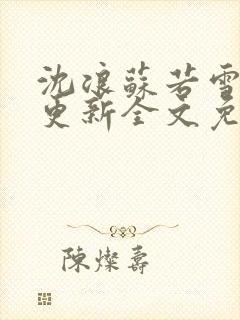 沈浪蘇若雪
更新全文免
陳燦壽